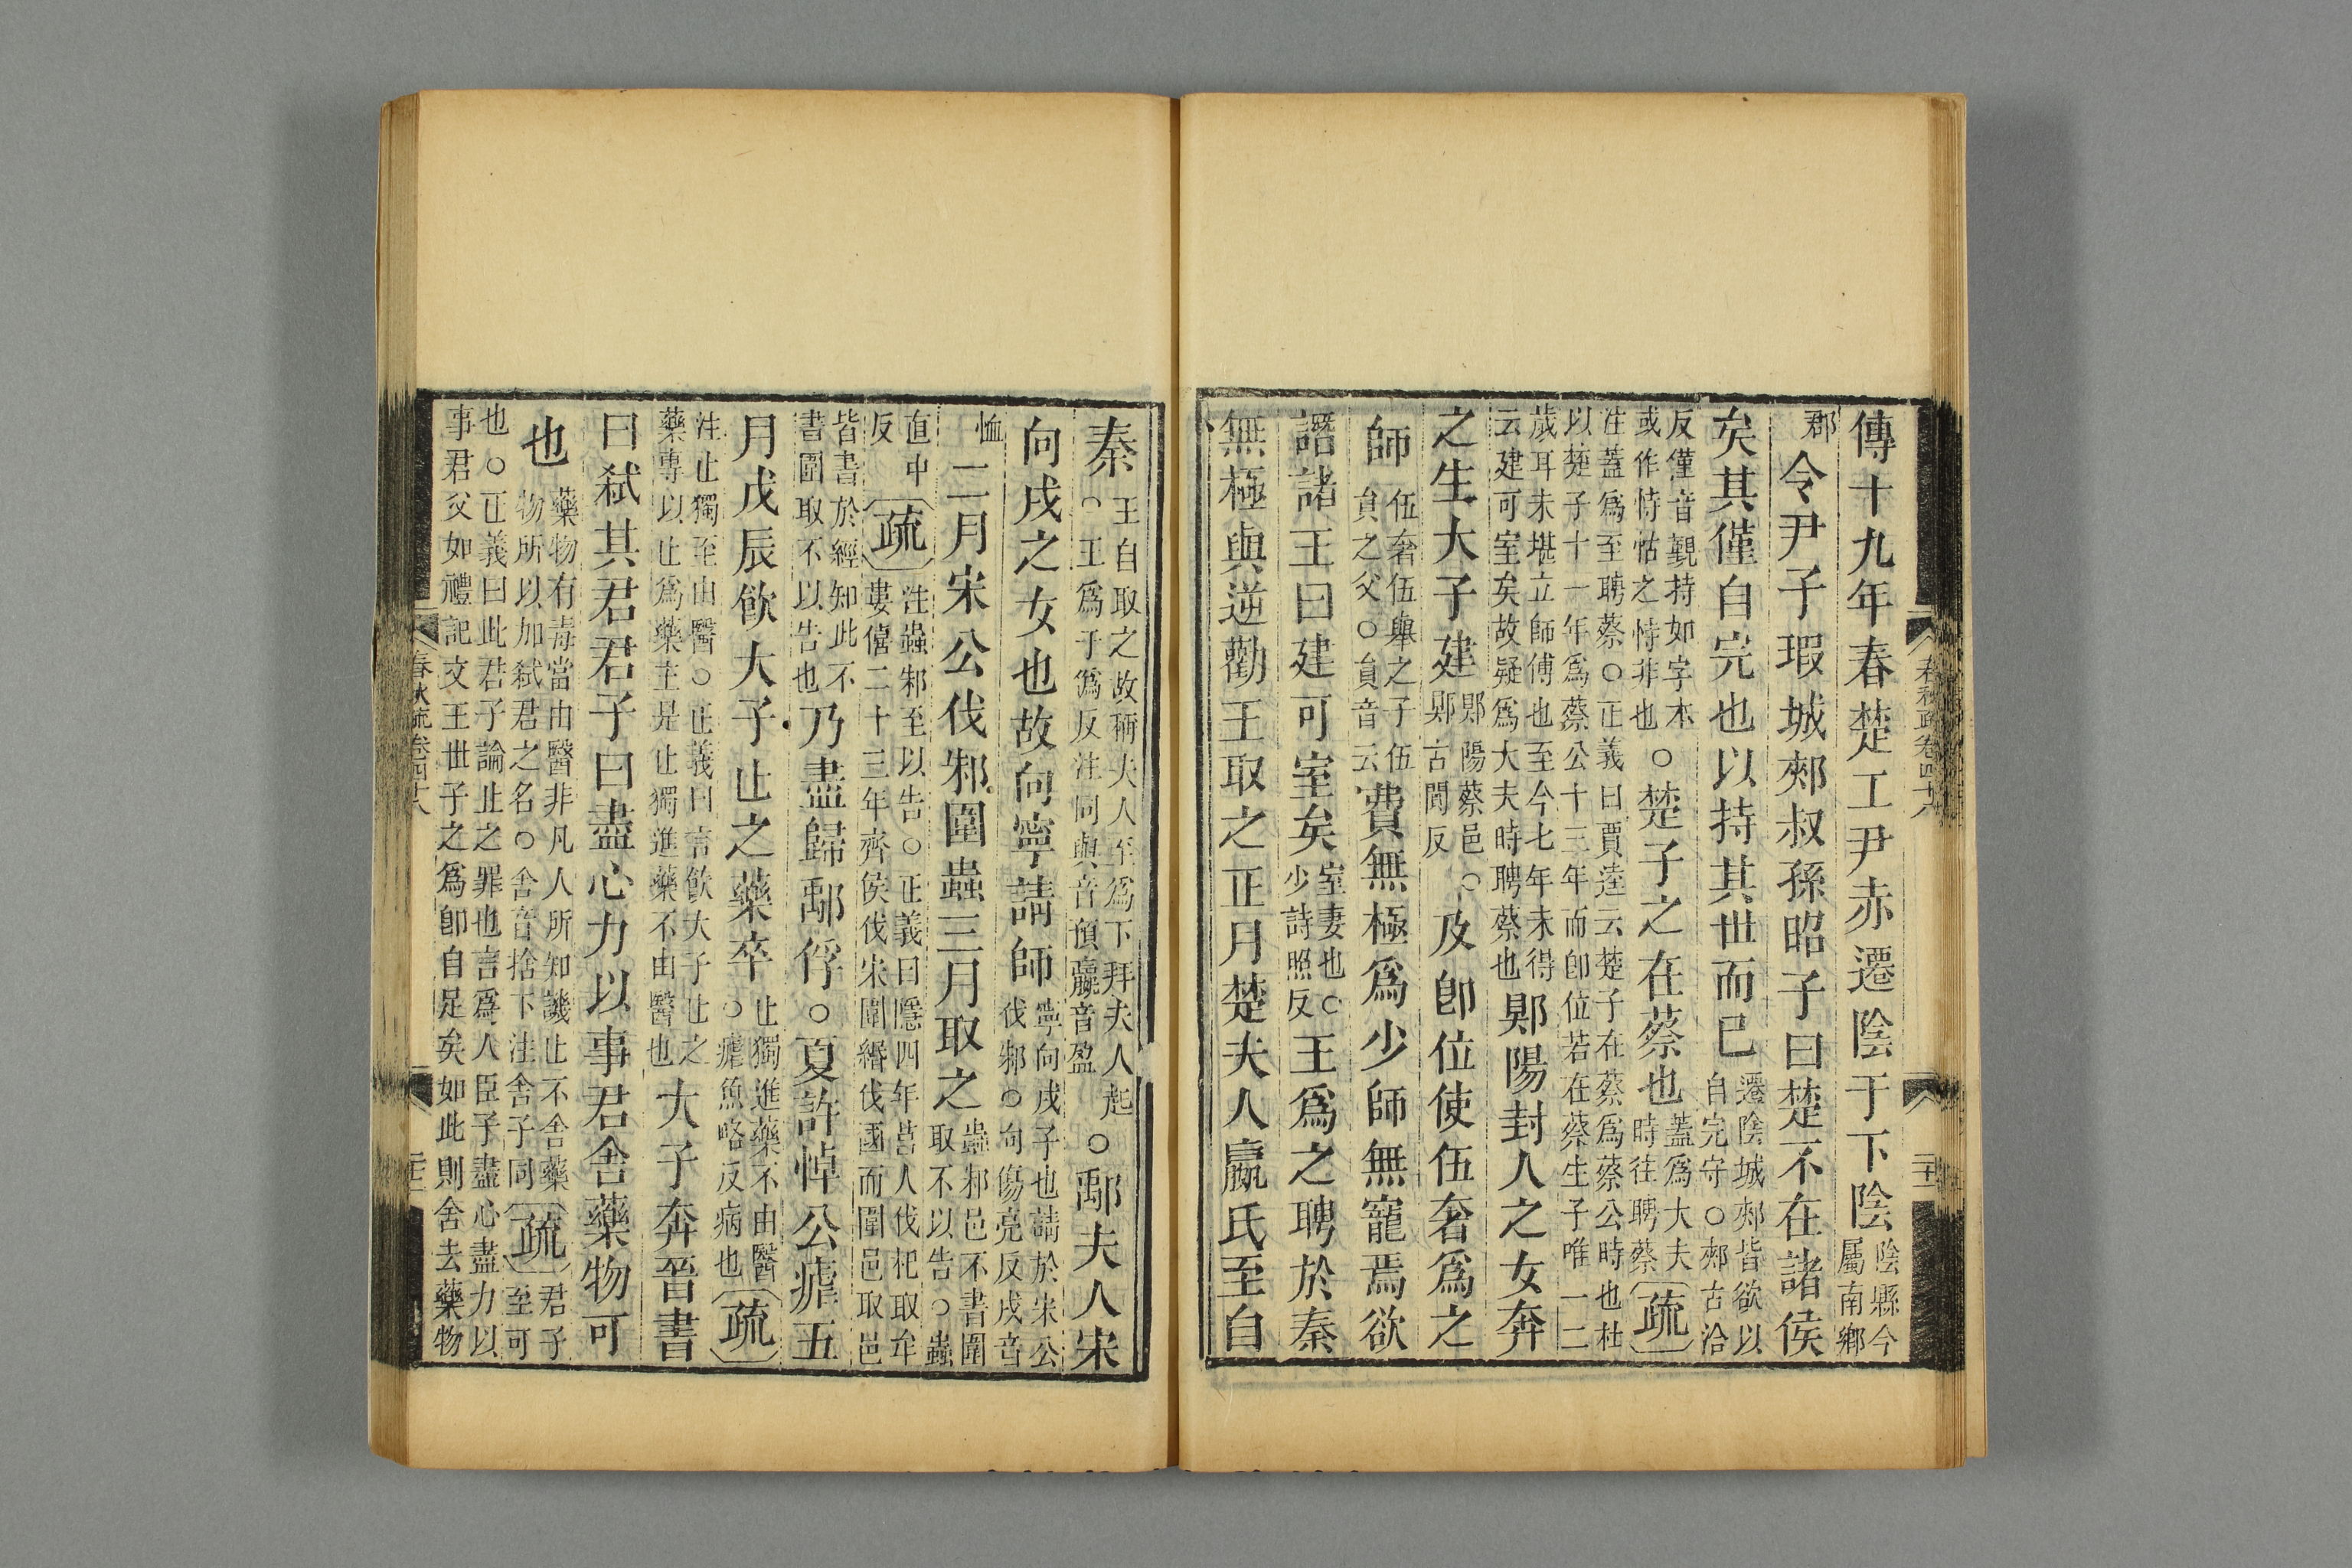 傳十九年春楚工尹赤遷陰于下陰陰縣今屬南鄉
郡令尹子瑕城郟叔孫昭子曰楚不在諸侯
矣其僅自完也以持其世而已遷陰城郟皆欲以自完守○郟古洽
反僅音覲持如字本或作恃恃怙之恃非也○楚子之在蔡也蓋爲大夫時往聘蔡疏
注蓋爲至聘蔡○正義曰賈逵云楚子在蔡爲蔡公時也杜
以楚子十一年爲蔡公十三年而卽位若在蔡生子唯一二
歲耳未堪立師傅也至今七年未得
云建可室矣故疑爲大夫時聘蔡也郹陽封人之女奔
之生大子建郹陽蔡邑○郹古闃反及卽位使伍奢爲之
師伍奢伍舉之子伍員之父○員音云費無極爲少師無寵焉欲
譖諸王曰建可室矣室妻也○少詩照反王爲之聘於秦
無極與逆勸王取之正月楚夫人嬴氏至自
秦王自取之故稱夫人至爲下拜夫人起○王爲于僞反注同與音預嬴音盈○鄅夫人宋
向戌之女也故向寧請師寧向戌子也請於宋公伐邾○向傷亮反戌音
恤二月宋公伐邾圍蟲三月取之蟲邾邑不書圍取不以告○蟲
直中反疏注蟲邾至以告○正義曰隱四年莒人伐杞取牟婁僖二十三年齊侯伐宋圍緡伐國而圍邑取邑
皆書於經知此不書圍取不以告也乃盡歸鄅俘○夏許悼公瘧五
月戊辰飲大子止之藥卒止獨進藥不由醫○瘧魚略反病也疏
注止獨至由醫○正義曰言飲大子止之藥專以止爲藥主是止獨進藥不由醫也大子奔晉書
曰弒其君君子曰盡心力以事君舍藥物可
也藥物有毒當由醫非凡人所知譏止不舍藥物所以加弒君之名○舍音捨下注舍子同疏君子至可
也○正義曰此君子論止之罪也言爲人臣子盡心盡力以
事君父如禮記文王世子之爲卽自足矣如此則舍去藥物